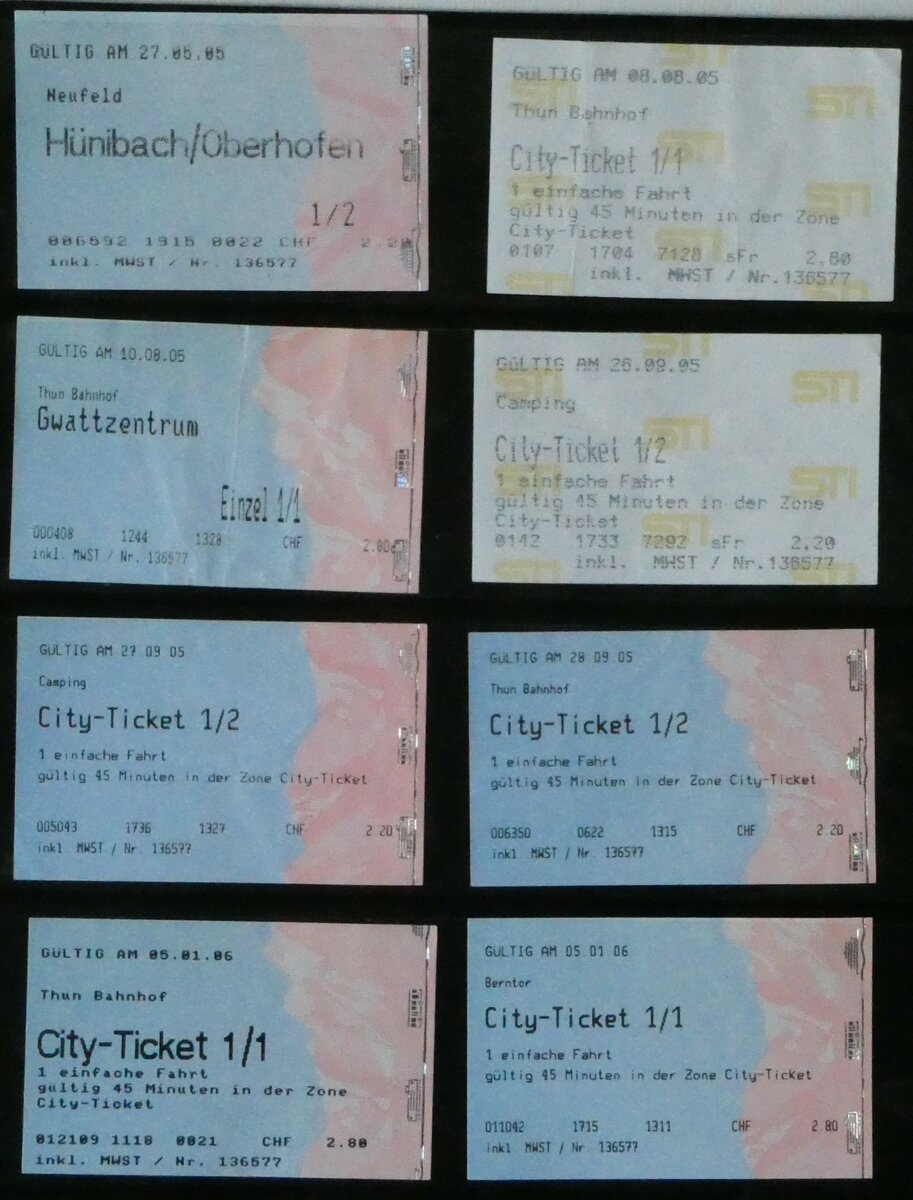 GÜLTIG AM 27.05.05
Neufeld
Hünibach/Oberhofen
1/2
006592 1915 0022 CHF 2.20
inkl. MWST / Nr. 136577
GÜLTIG AM 08.08.05
Thun Bahnhof
City-Ticket 1/1
1 einfache Fahrt
gültig 45 Minuten in der Zone
City-Ticket
0107 1704 7128 sFr 2.80
inkl. MWST / Nr.136577
STI
GÜLTIG AM 10.08.05
Thun Bahnhof
Gwattzentrum
Einzel 1/1
000408 1244 1328 CHF 2.80
inkl. MWST / Nr. 136577
GÜLTIG AM 26.09.05
Camping
City-Ticket 1/2
1 einfache Fahrt
gültig 45 Minuten in der Zone
City-Ticket
0142 1733 7292 sFr 2.20
inkl. MWST / Nr.136577
STI
GÜLTIG AM 27 09 05
Camping
City-Ticket 1/2
1 einfache Fahrt
gültig 45 Minuten in der Zone City-Ticket
005043 1736 1327 CHF 2 20
inkl. MWST / Nr. 136577
GÜLTIG AM 28 09.05
Thun Bahnhof
City-Ticket 1/2
1 einfache Fahrt
gültig 45 Minuten in der Zone City-Ticket
006350 0622 1315 CHF 2 20
inkl MWST / Nr. 136577
GÜLTIG AM 05.01.06
Thun Bahnhof
City-Ticket 1/1
1 einfache Fahrt
gültig 45 Minuten in der Zone
City-Ticket
012109 1118 0021 CHF 2.80
inkl. MWST / Nr. 136577
GÜLTIG AM 05 01 06
Berntor
City-Ticket 1/1
1 einfache Fahrt
gültig 45 Minuten in der Zone City-Ticket
011042 1715 1311 CHF 2 80
inkl. MWST / Nr 136577